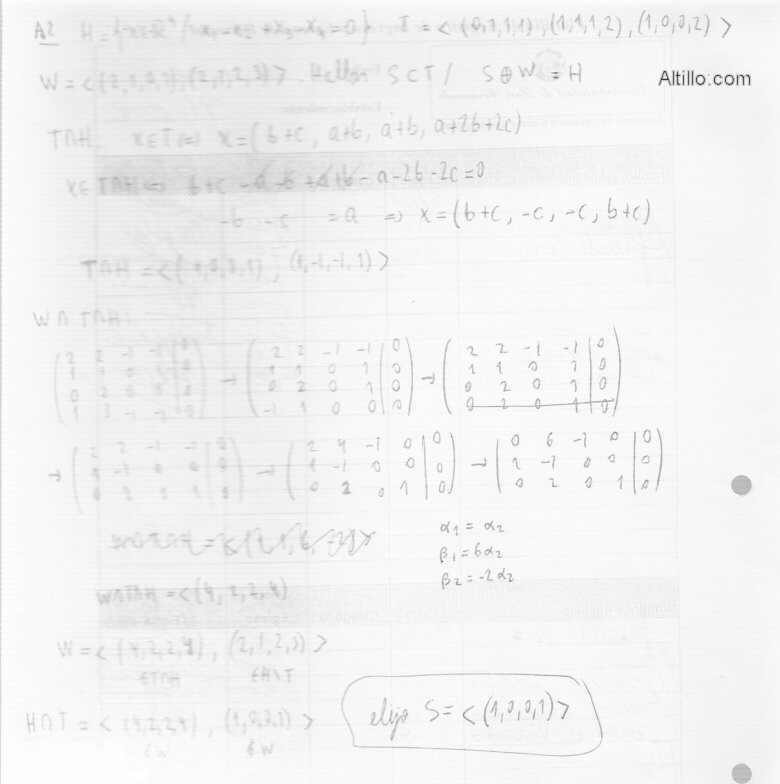 A2 H = {x∈ℝ⁴/ x₁-x₂+x₃-x₄=0} T = <(0,1,1,1),(1,1,1,2),(1,0,0,2)>
Altillo.com
W = < (2,1,2,3)>. Hallar S⊂T / S⊕W = H
T∩H: x∈T ⇔ x = (b+c, a+b, a+b, a+2b+2c)
x∈T∩H ⇔ b+c -a-b +a+b -a-2b-2c=0
-b -c = a ⇒ x = (b+c, -c, -c, b+c)
T∩H = <(1,0,0,1), (1,-1,-1,1)>
W∩T∩H:
→ ( 2 2 -1 -1 | 0 → ( 2 2 -1 -1 | 0
1 1 0 1 | 0 1 1 0 1 | 0
0 2 0 1 | 0 0 2 0 1 | 0
-1 1 0 0 | 0 ) 0 2 0 1 | 0 )
→ → ( 2 4 -1 0 | 0 → ( 0 6 -1 0 | 0
1 -1 0 0 | 0 1 -1 0 0 | 0
0 2 0 1 | 0 ) 0 2 0 1 | 0 )
α₁ = α₂
β₁ = 6α₂
β₂ = -2α₂
W∩T∩H = <(4,2,2,4)
W = < (4,2,2,4), (2,1,2,3) >
∈T∩H ∈H\T
H∩T = < (4,2,2,4), (1,0,0,1) >
∈W ∉W
elijo S = < (1,0,0,1) >